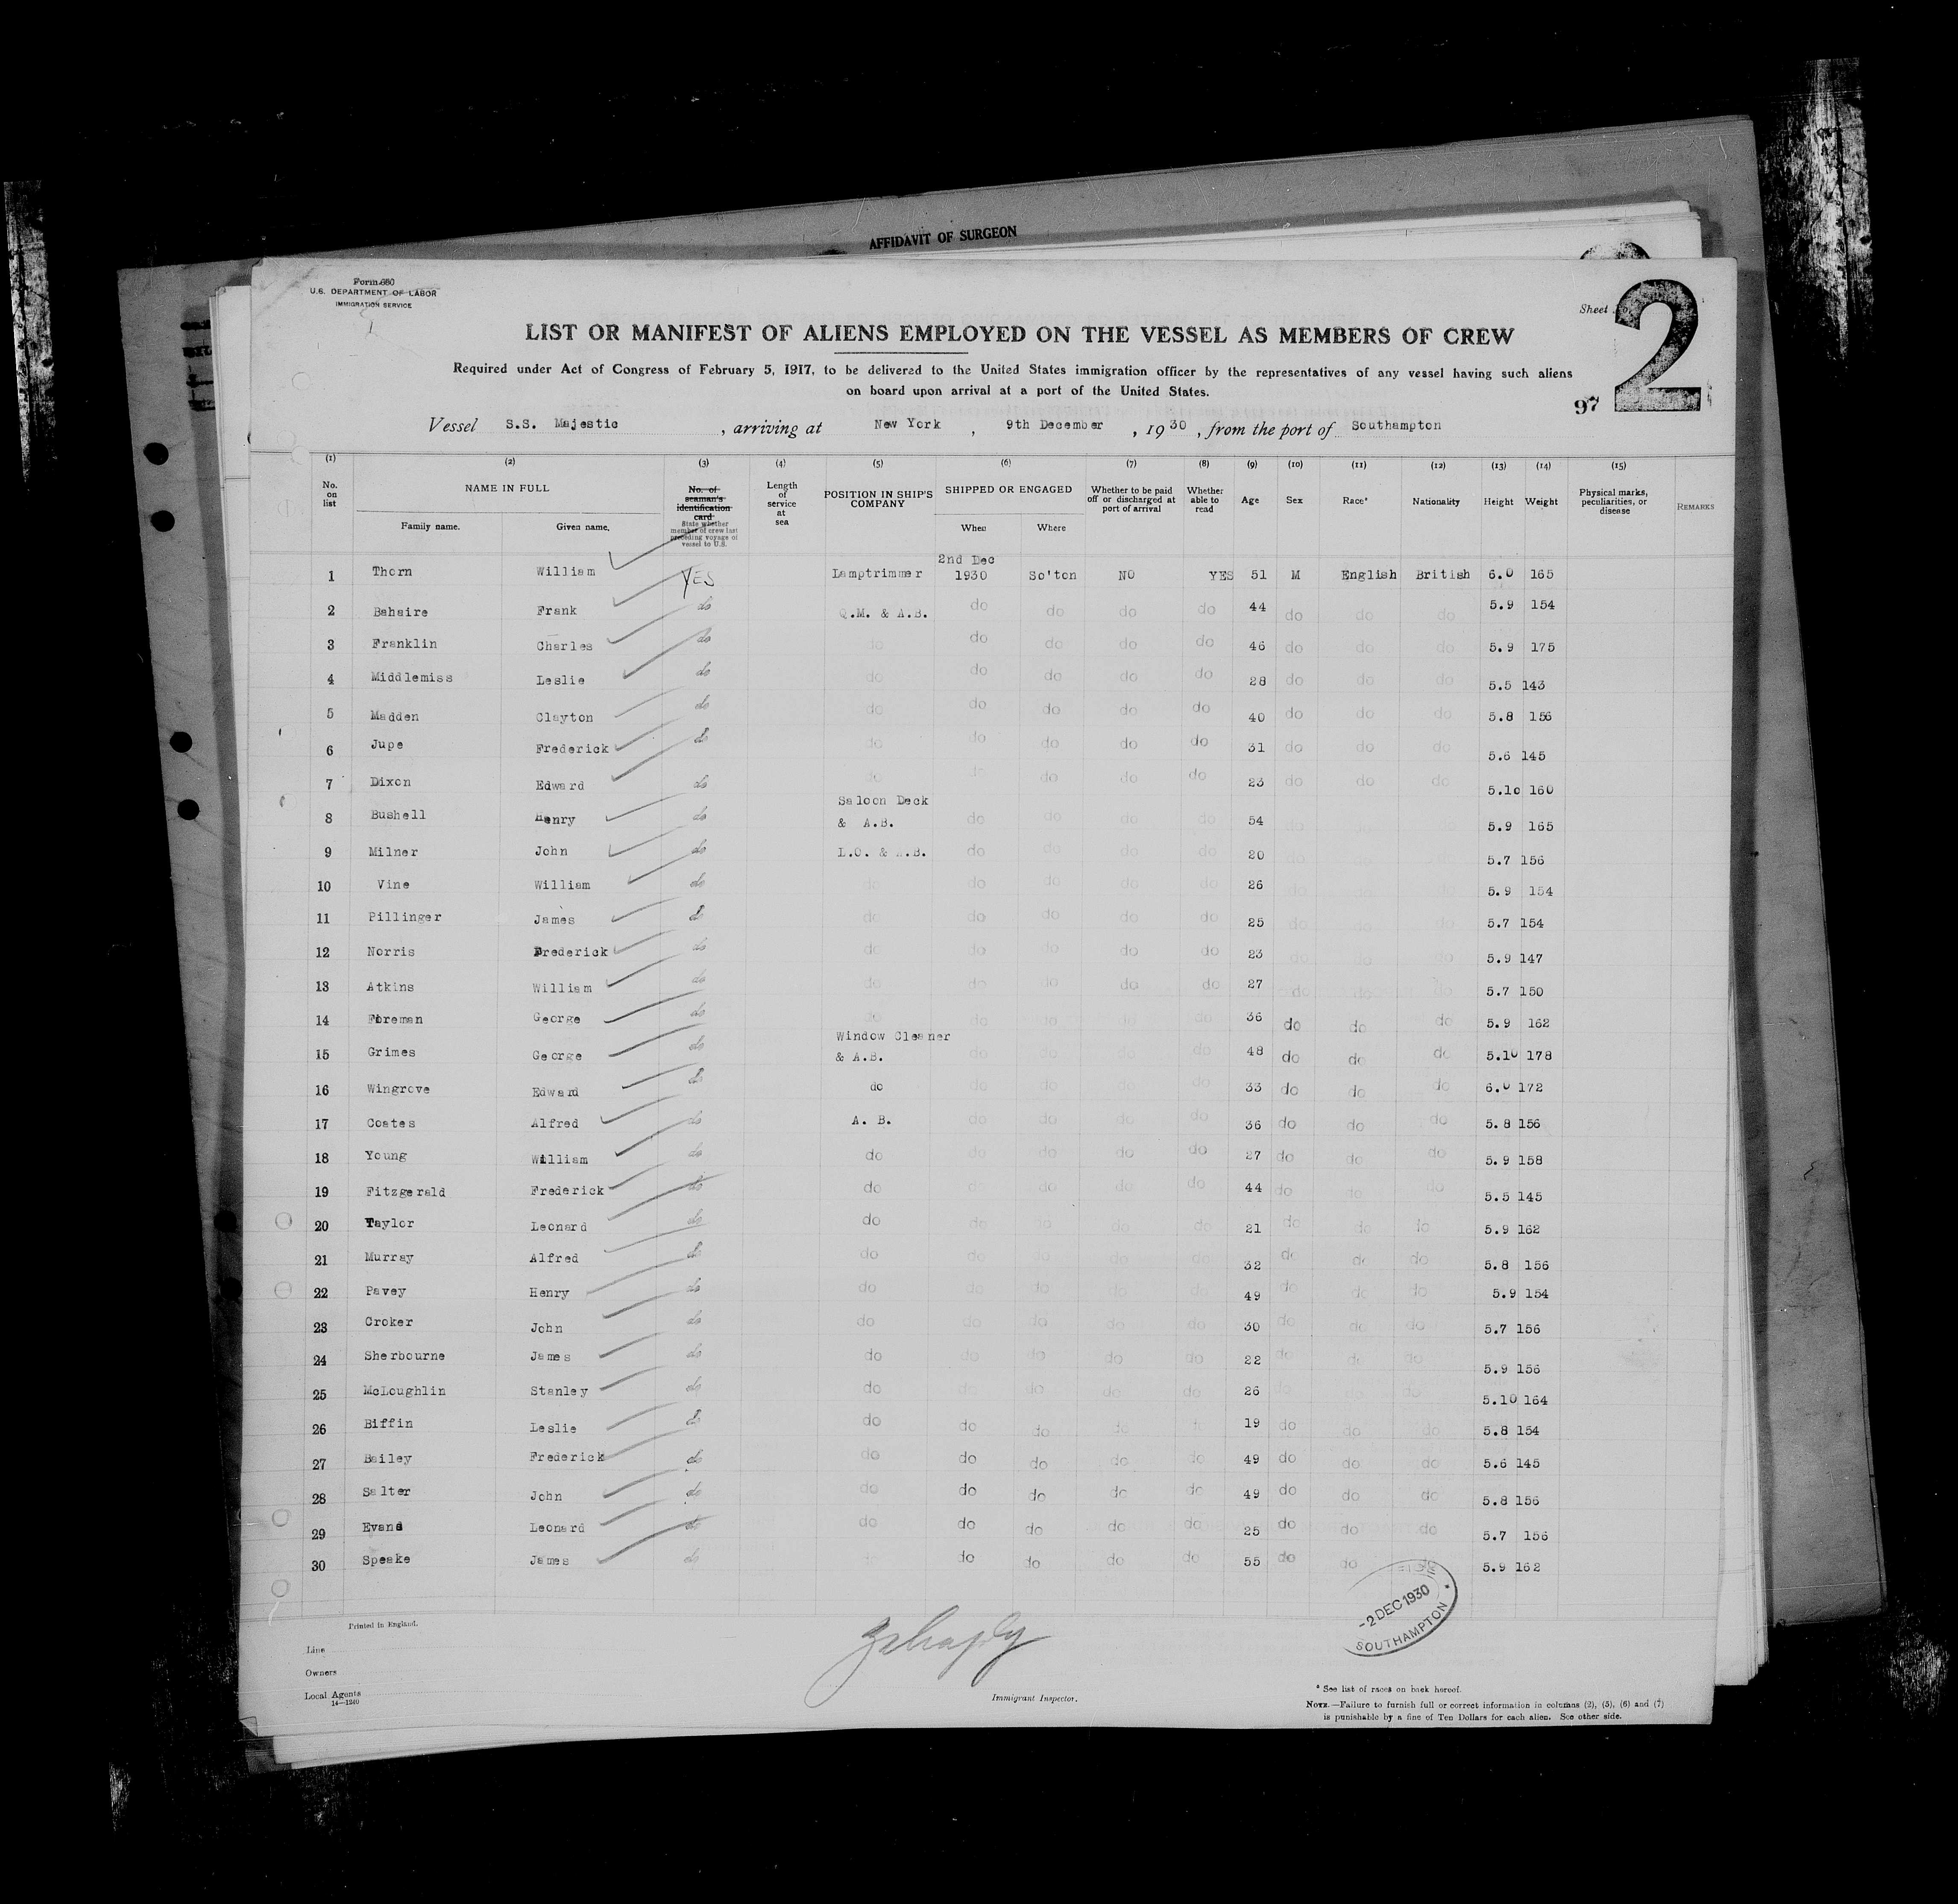 AFFIDAVIT OF SURGEON
Form 680
U.S. DEPARTMENT OF LABOR
IMMIGRATION SERVICE
Sheet No.
2
LIST OR MANIFEST OF ALIENS EMPLOYED ON THE VESSEL AS MEMBERS OF CREW
Required under Act of Congress of February 5, 1917, to be delivered to the United States immigration officer by the representatives of any vessel having such aliens
on board upon arrival at a port of the United States.
97
Vessel S.S. Majestic, arriving at New York, 9th December, 1930, from the port of Southampton
(1) (2) (3) (4) (5) (6) (7) (8) (9) (10) (11) (12) (13) (14) (15)
No. on list NAME IN FULL Family name. Given name. No. of seaman's identification card State whether member of crew last preceding voyage of vessel to U.S. Length of service at sea POSITION IN SHIP'S COMPANY SHIPPED OR ENGAGED When Where Whether to be paid off or discharged at port of arrival Whether able to read Age Sex Race* Nationality Height Weight Physical marks, peculiarities, or disease REMARKS
1 Thorn William YES Lamptrimmer 2nd Dec 1930 So'ton NO YES 51 M English British 6.0 165
2 Bahaire Frank do Q.M. & A.B. do do do do 44 do do do 5.9 154
3 Franklin Charles do do do do do do 46 do do do 5.9 175
4 Middlemiss Leslie do do do do do do 28 do do do 5.5 143
5 Madden Clayton do do do do do do 40 do do do 5.8 156
6 Jupe Frederick do do do do do do 31 do do do 5.6 145
7 Dixon Edward do do do do do do 23 do do do 5.10 160
8 Bushell Henry do Saloon Deck & A.B. do do do do 54 do do do 5.9 165
9 Milner John do L.O. & A.B. do do do do 20 do do do 5.7 156
10 Vine William do do do do do do 26 do do do 5.9 154
11 Pillinger James do do do do do do 25 do do do 5.7 154
12 Norris Frederick do do do do do do 23 do do do 5.9 147
13 Atkins William do do do do do do 27 do do do 5.7 150
14 Foreman George do do do do do do 36 do do do 5.9 162
15 Grimes George do Window Cleaner & A.B. do do do do 48 do do do 5.10 178
16 Wingrove Edward do do do do do do 33 do do do 6.0 172
17 Coates Alfred do A. B. do do do do 36 do do do 5.8 156
18 Young William do do do do do do 27 do do do 5.9 158
19 Fitzgerald Frederick do do do do do do 44 do do do 5.5 145
20 Taylor Leonard do do do do do do 21 do do do 5.9 162
21 Murray Alfred do do do do do do 32 do do do 5.8 156
22 Pavey Henry do do do do do do 49 do do do 5.9 154
23 Croker John do do do do do do 30 do do do 5.7 156
24 Sherbourne James do do do do do do 22 do do do 5.9 156
25 McLoughlin Stanley do do do do do do 26 do do do 5.10 164
26 Biffin Leslie do do do do do do 19 do do do 5.8 154
27 Bailey Frederick do do do do do do 49 do do do 5.6 145
28 Salter John do do do do do do 49 do do do 5.8 156
29 Evans Leonard do do do do do do 25 do do do 5.7 156
30 Speake James do do do do do do 55 do do do 5.9 162
-2 DEC 1930
SOUTHAMPTON
Printed in England.
Line
Owners
Local Agents
14—1240
Immigrant Inspector.
* See list of races on back hereof.
NOTE.—Failure to furnish full or correct information in columns (2), (5), (6) and (7)
is punishable by a fine of Ten Dollars for each alien. See other side.